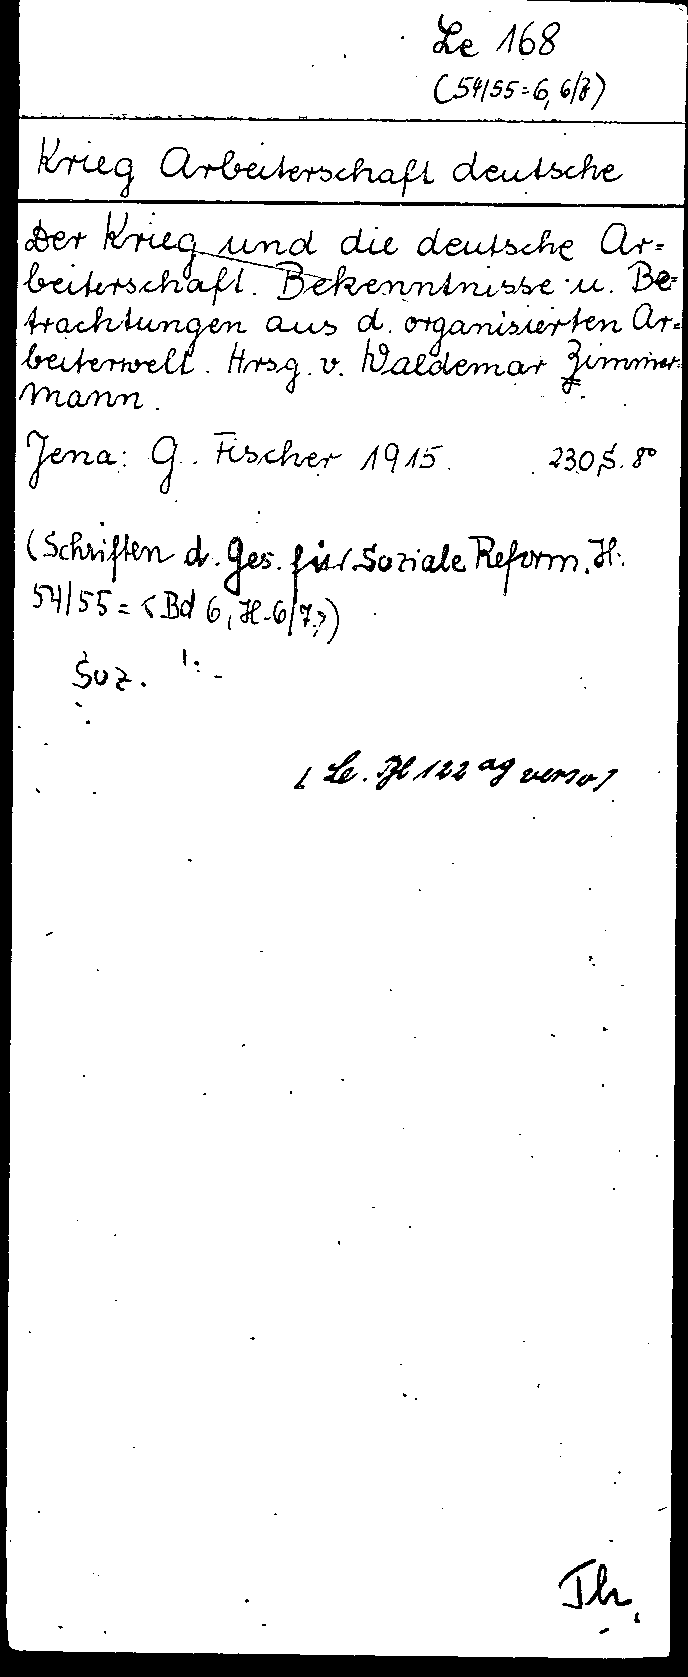 Le 168
(54/55=6, 6/7)
Krieg Arbeiterschaft deutsche
Der Krieg und die deutsche Ar=
beiterschaft. Bekenntnisse u. Be=
trachtungen aus d. organisierten Ar=
beiterwelt. Hrsg. v. Waldemar Zimmer=
mann.
Jena: G. Fischer 1915. 230 S. 8°
(Schriften d. Ges. für Soziale Reform. H.
54/55 = <Bd 6, H. 6/7>)
Soz.
(Le. 122 ag verso)
Th.